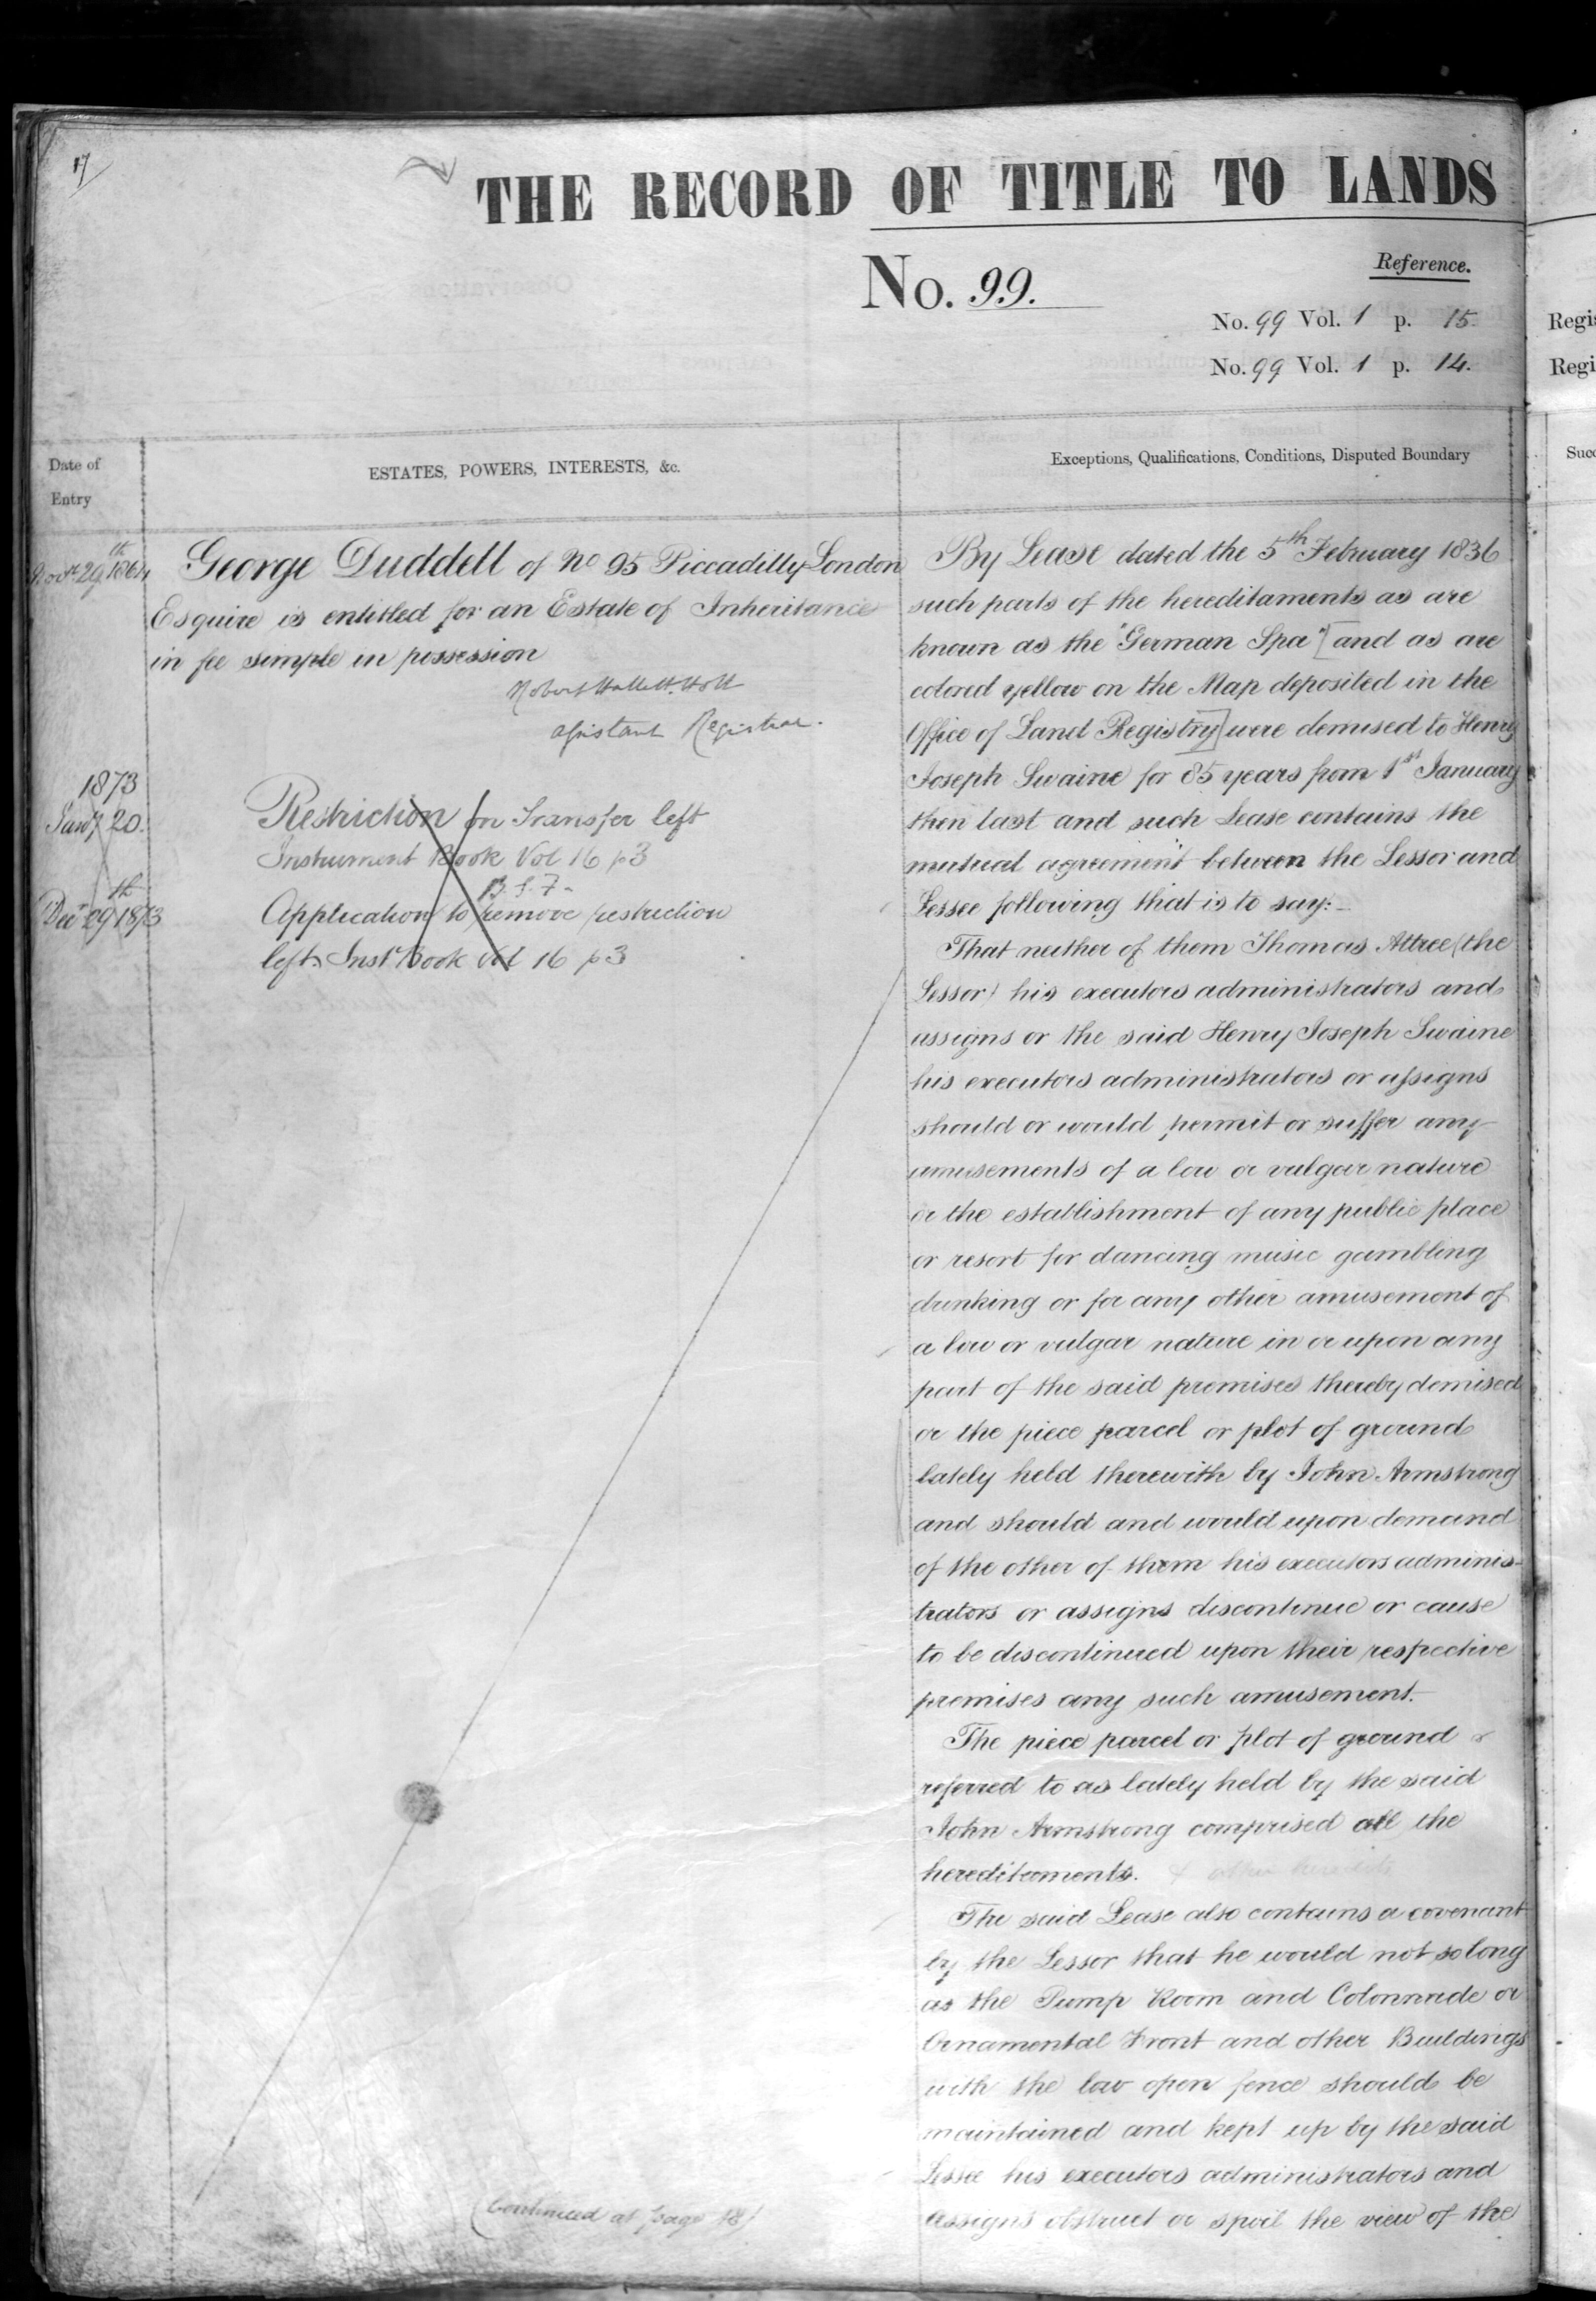 17
THE RECORD OF TITLE TO LANDS
No. 99.
Reference.
No. 99 Vol. 1 p. 15.
No. 99 Vol. 1 p. 14.
Regi
Regi
Date of
Entry
ESTATES, POWERS, INTERESTS, &c.
Exceptions, Qualifications, Conditions, Disputed Boundary
Succ
29th 1864
George Duddell of No 95 Piccadilly London
Esquire is entitled for an Estate of Inheritance
in fee simple in possession
Robert Hallett Holt
Assistant Registrar.
1873
Jany 20.
Restriction on Transfer left
Instrument Book Vol 16 p3
Decr 29th 1873
Application to remove restriction
left Inst Book Vol 16 p3
(Continued at page 18)
By Lease dated the 5th February 1836
such parts of the hereditaments as are
known as the "German Spa" [and as are
colored yellow on the Map deposited in the
Office of Land Registry] were demised to Henry
Joseph Swaine for 85 years from 1st January
then last and such Lease contains the
mutual agreement between the Lessor and
Lessee following that is to say:-
That neither of them Thomas Attree (the
Lessor) his executors administrators and
assigns or the said Henry Joseph Swaine
his executors administrators or assigns
should or would permit or suffer any
amusements of a low or vulgar nature
or the establishment of any public place
or resort for dancing music gambling
drinking or for any other amusement of
a low or vulgar nature in or upon any
part of the said premises thereby demised
or the piece parcel or plot of ground
lately held therewith by John Armstrong
and should and would upon demand
of the other of them his executors adminis-
trators or assigns discontinue or cause
to be discontinued upon their respective
premises any such amusement.
The piece parcel or plot of ground
referred to as lately held by the said
John Armstrong comprised all the
hereditaments.
The said Lease also contains a covenant
by the Lessor that he would not so long
as the Pump Room and Colonnade or
Ornamental Front and other Buildings
with the low open fence should be
maintained and kept up by the said
Lessee his executors administrators and
assigns obstruct or spoil the view of the